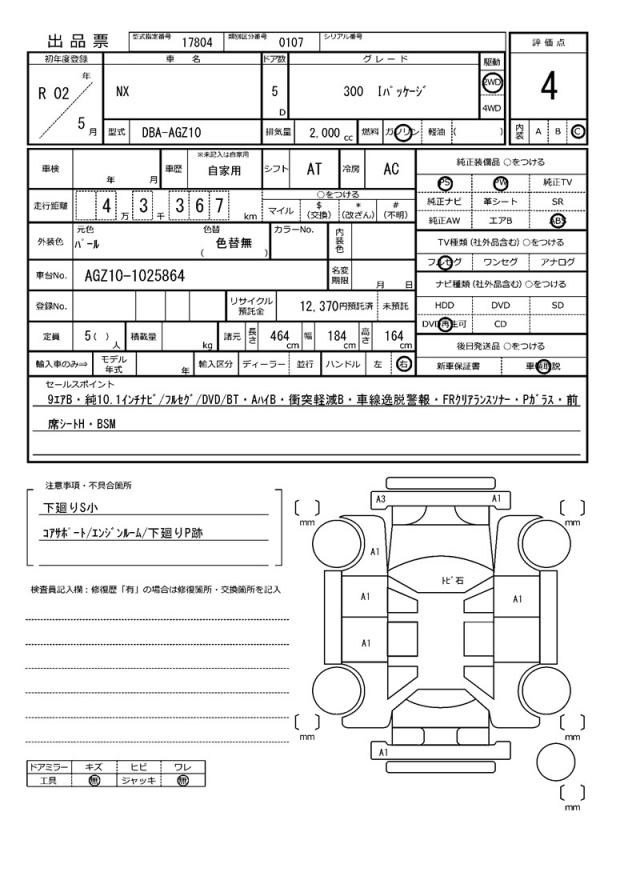 出品票
型式指定番号 17804 類別区分番号 0107 シリアル番号
初年度登録 車名 ドア数 グレード 駆動 評価点
R 02 年 5 月 NX 5 D 300 Iパッケージ 2WD 4WD 4
型式 DBA-AGZ10 排気量 2,000 cc 燃料 ガソリン 軽油 ( ) 内装 A B C
車検 年 月 車歴 ※未記入は自家用 自家用 シフト AT 冷房 AC
走行距離 4 万 3 千 3 6 7 km
○をつける
マイル $ (交換) * (改ざん) # (不明)
外装色 元色 パール 色替 ( 色替無 ) カラーNo. 内装色
車台No. AGZ10-1025864 名変期限 月 日
登録No. リサイクル預託金 12,370円預託済 未預託
定員 5( ) 人 積載量 kg 諸元 長さ 464 cm 幅 184 cm 高さ 164 cm
輸入車のみ⇒ モデル年式 年 輸入区分 ディーラー 並行 ハンドル 左 右
純正装備品 ○をつける
PS PW 純正TV
純正ナビ 革シート SR
純正AW エアB ABS
TV種類 (社外品含む) ○をつける
フルセグ ワンセグ アナログ
ナビ種類 (社外品含む) ○をつける
HDD DVD SD
DVD再生可 CD
後日発送品 ○をつける
新車保証書 車輌取説
セールスポイント
9エアB・純10.1インチナビ/フルセグ/DVD/BT・AハイB・衝突軽減B・車線逸脱警報・FRクリアランスソナー・Pガラス・前
席シートH・BSM
注意事項・不具合箇所
下廻りS小
コアサポート/エンジンルーム/下廻りP跡
検査員記入欄:修復歴「有」の場合は修復箇所・交換箇所を記入
A3 A1
[ ] mm [ ] mm
A1
トビ石
A1 A1
A1
[ ] mm [ ] mm
A1
[ ] mm
ドアミラー キズ ヒビ ワレ
工具 無 ジャッキ 無